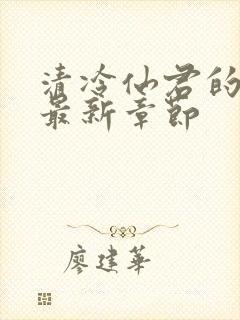 清冷仙君的
最新章节
廖建华